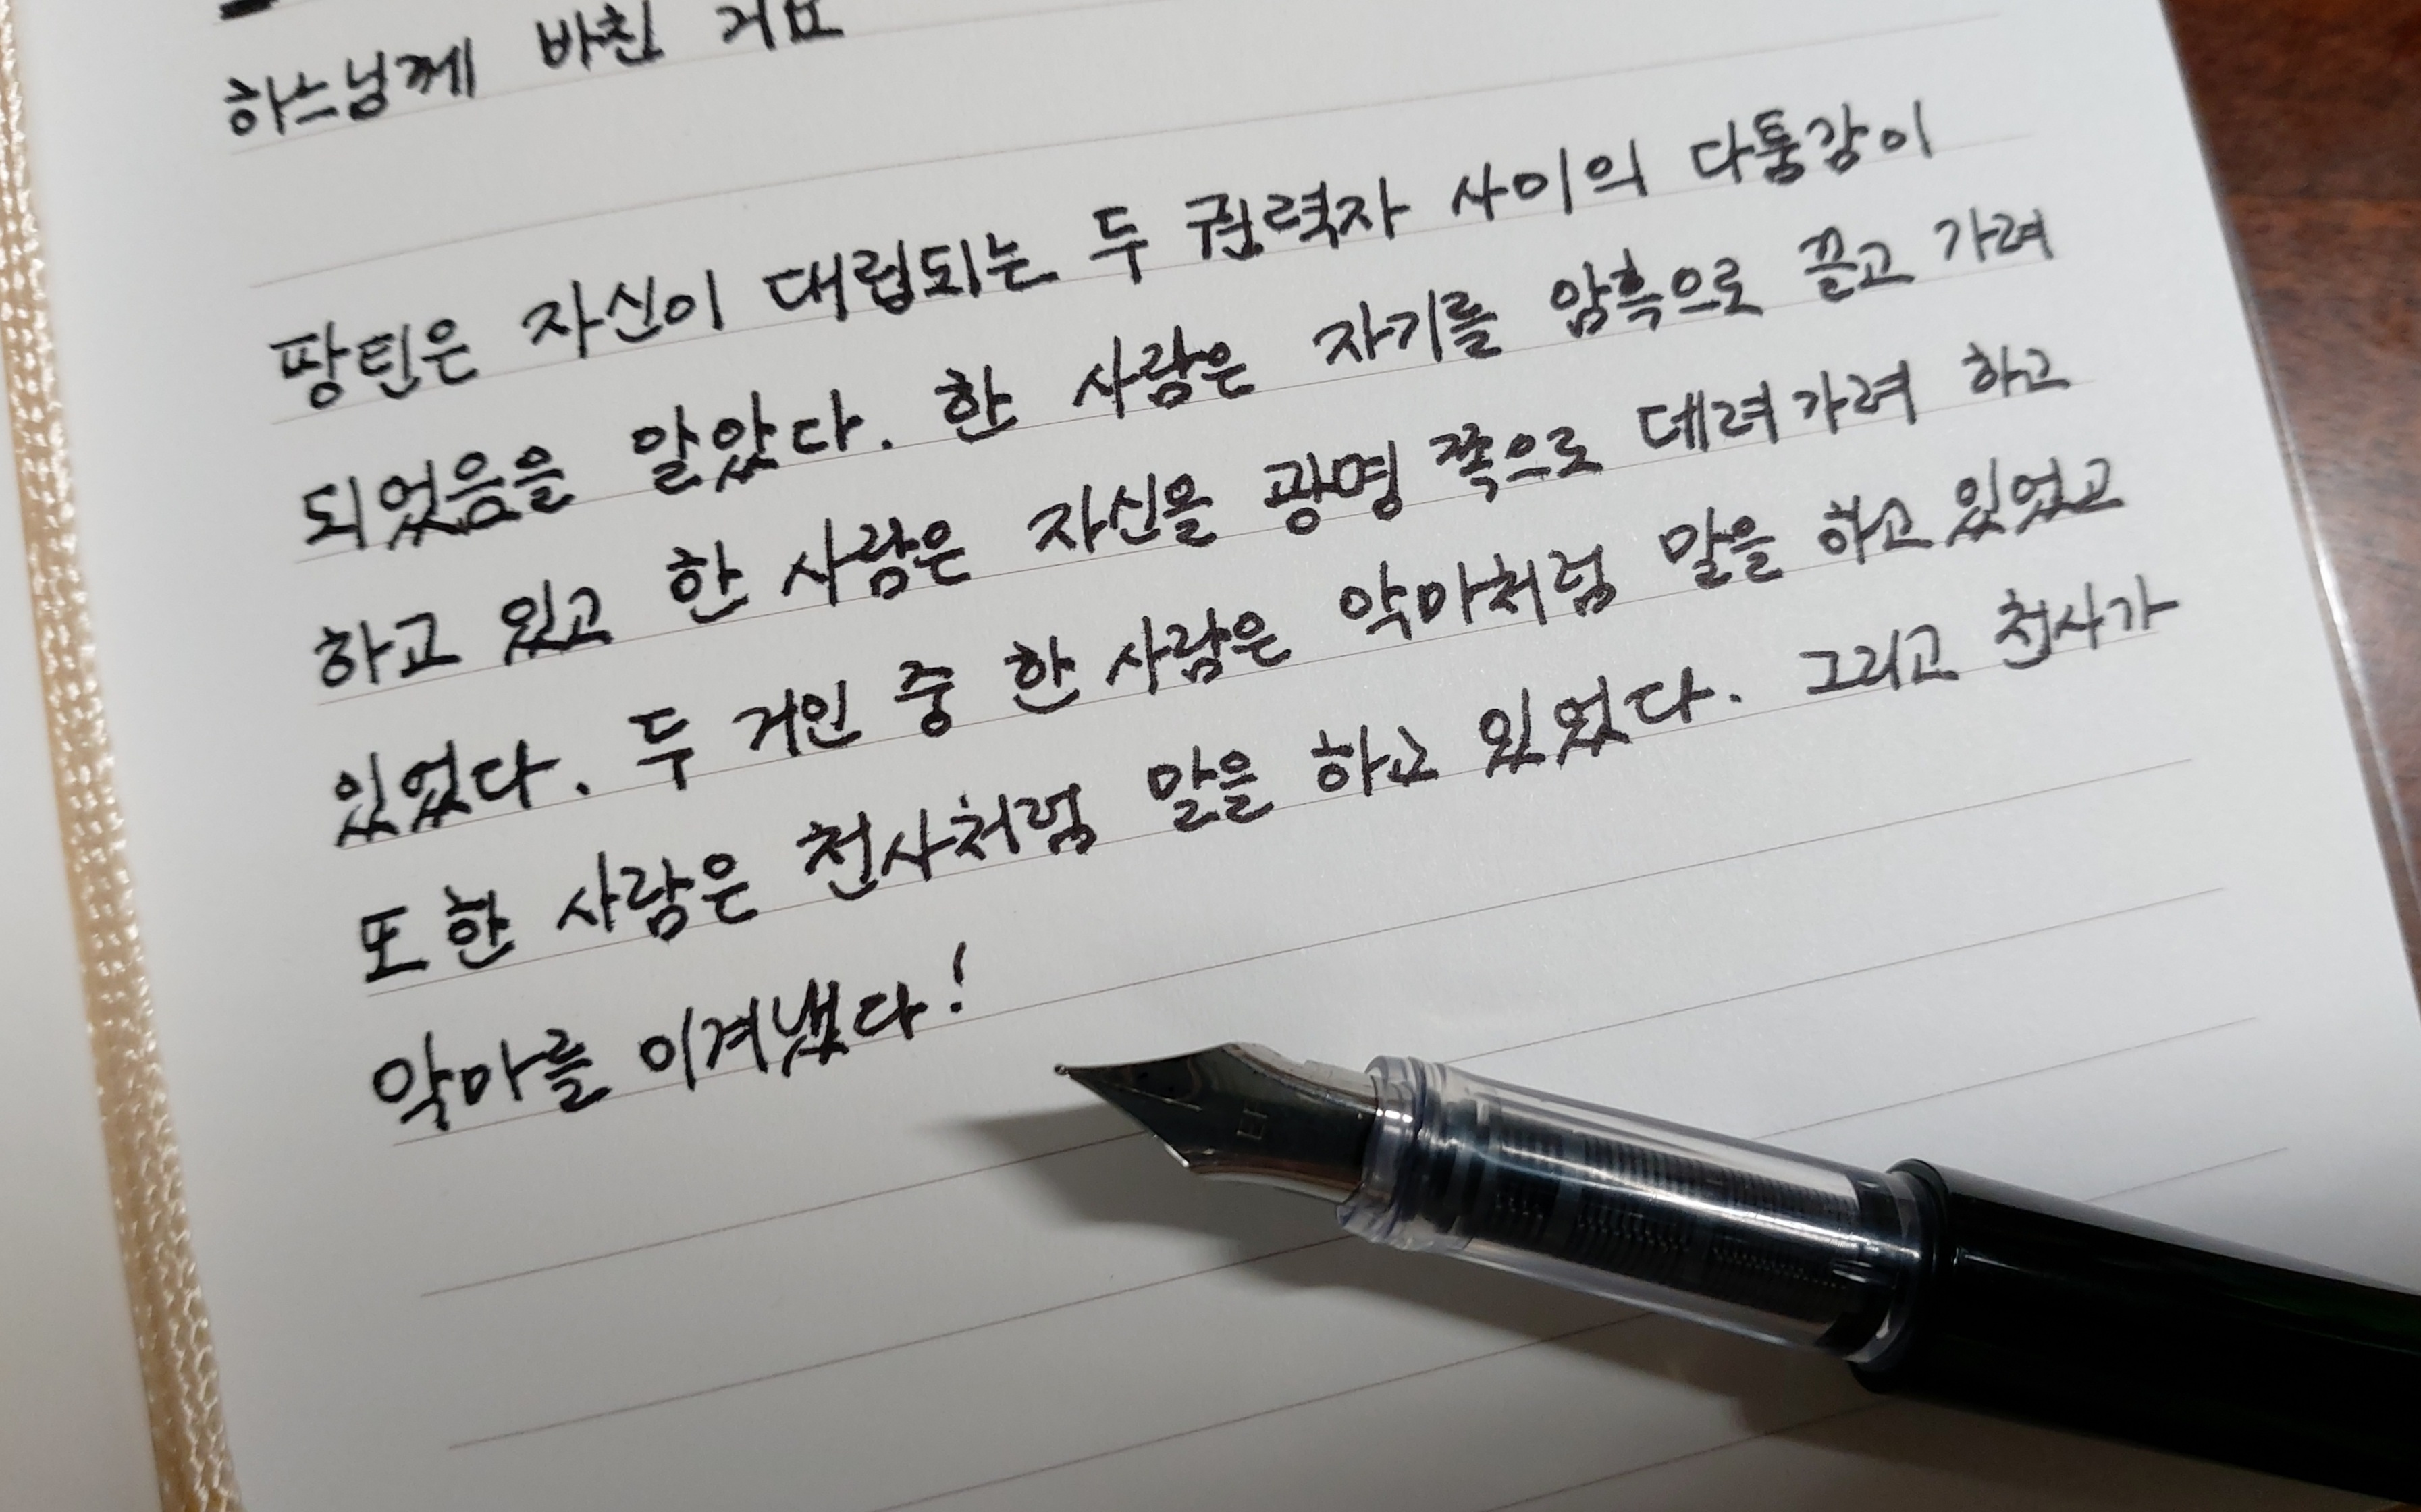 하느님께 바친 거요
팡틴은 자신이 대립되는 두 권력자 사이의 다툼감이
되었음을 알았다. 한 사람은 자기를 암흑으로 끌고 가려
하고 있고 한 사람은 자신을 광명 쪽으로 데려가려 하고
있었다. 두 거인 중 한 사람은 악마처럼 말을 하고 있었고
또 한 사람은 천사처럼 말을 하고 있었다. 그리고 천사가
악마를 이겨냈다!